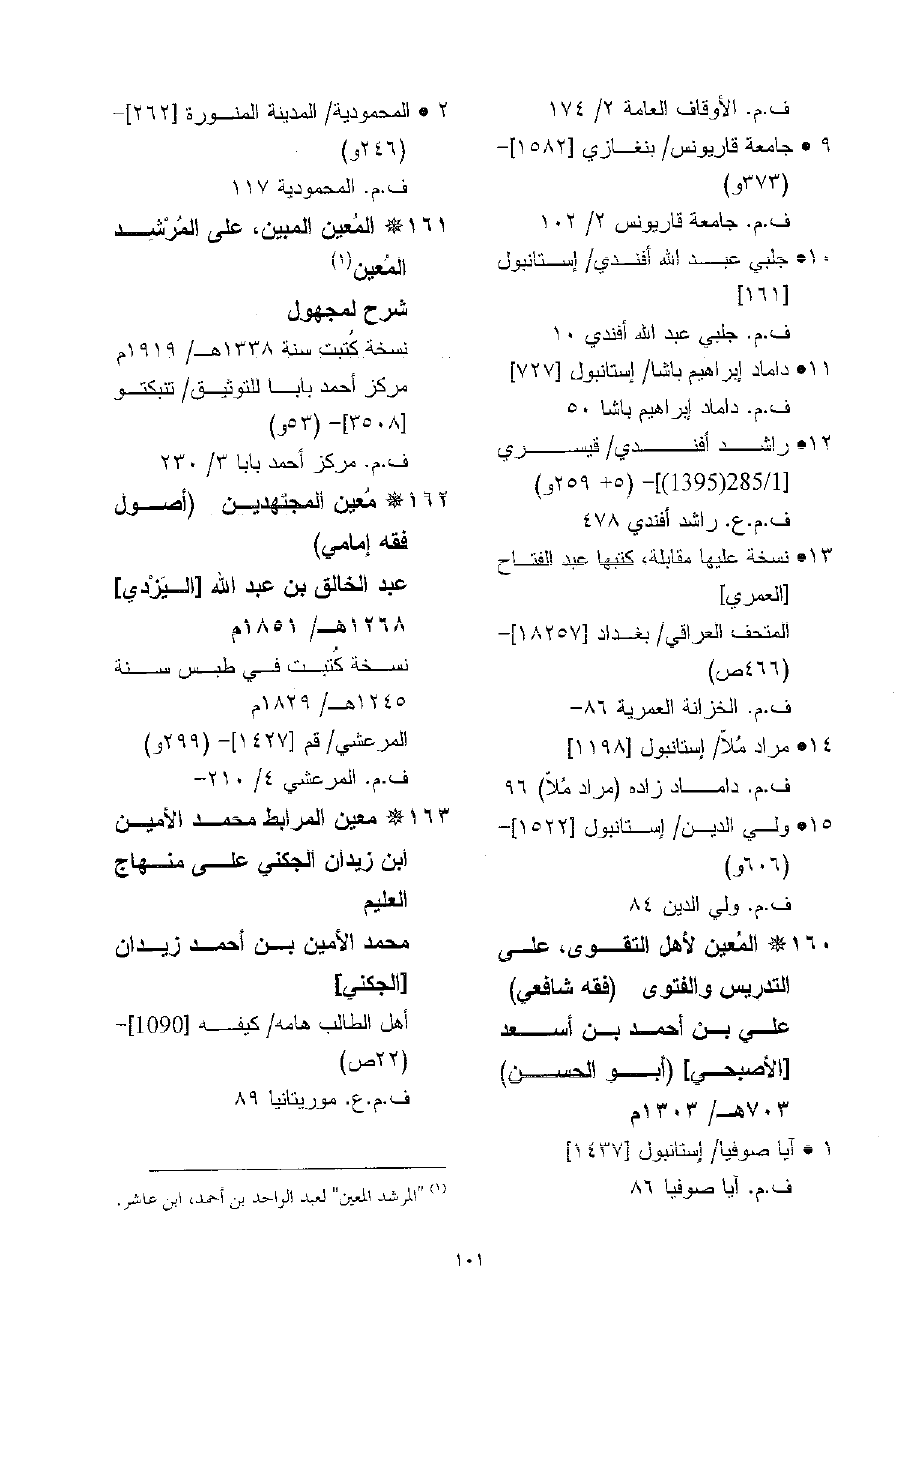 ف.م. الأوقاف العامة ٢/ ١٧٤
٩ • جامعة قاريونس/ بنغـازي [١٥٨٢]-
(٣٧٣و)
ف.م. جامعة قاريونس ٢/ ١٠٢
١٠• جلبي عبـد الله أفنـدي/ إسـتانبول
[١٦١]
ف.م. جلبي عبد الله أفندي ١٠
١١• داماد إبراهيم باشا/ إستانبول [٧٢٧]
ف.م. داماد إبراهيم باشا ٥٠
١٢• راشـد أفنـدي/ قيسـري
[285/1(1395)]- (٥+ ٢٥٩و)
ف.م.ع. راشد أفندي ٤٧٨
١٣• نسخة عليها مقابلة، كتبها عبد الفتـاح
[العمري]
المتحف العراقي/ بغـداد [١٨٢٥٧]-
(٤٦٦ص)
ف.م. الخزانة العمرية ٨٦-
١٤• مراد مُلاّ/ إستانبول [١١٩٨]
ف.م. دامـاد زاده (مراد مُلاّ) ٩٦
١٥• ولـي الديـن/ إسـتانبول [١٥٢٢]-
(٦٠٦و)
ف.م. ولي الدين ٨٤
١٦٠* المُعين لأهل التقـوى، علـى
التدريس والفتوى (فقه شافعي)
علـي بـن أحمـد بـن أسـعد
[الأصبحـي] (أبـو الحسـن)
٧٠٣هـ/ ١٣٠٣م
١ • آيا صوفيا/ إستانبول [١٤٣٧]
ف.م. آيا صوفيا ٨٦
٢ • المحمودية/ المدينة المنـورة [٢٦٢]-
(٢٤٦و)
ف.م. المحمودية ١١٧
١٦١* المُعين المبين، على المُرْشِـد
المُعين(١)
شرح لمجهول
نسخة كُتبت سنة ١٣٣٨هـ/ ١٩١٩م
مركز أحمد بابـا للتوثيـق/ تنبكتـو
[٣٥٠٨]- (٥٣و)
ف.م. مركز أحمد بابا ٣/ ٢٣٠
١٦٢* مُعين المجتهديـن (أصـول
فقه إمامي)
عبد الخالق بن عبد الله [الـيَزْدي]
١٢٦٨هـ/ ١٨٥١م
نسـخة كُتبـت فـي طبـس سـنة
١٢٤٥هـ/ ١٨٢٩م
المرعشي/ قم [١٤٢٧]- (٢٩٩و)
ف.م. المرعشي ٤/ ٢١٠-
١٦٣* معين المرابط محمـد الأميـن
ابن زيدان الجكني علـى منهـاج
العليم
محمد الأمين بـن أحمـد زيـدان
[الجكني]
أهل الطالب هامه/ كيفـه [1090]-
(٢٢ص)
ف.م.ع. موريتانيا ٨٩
(١) "المرشد المعين" لعبد الواحد بن أحمد، ابن عاشر.
١٠١